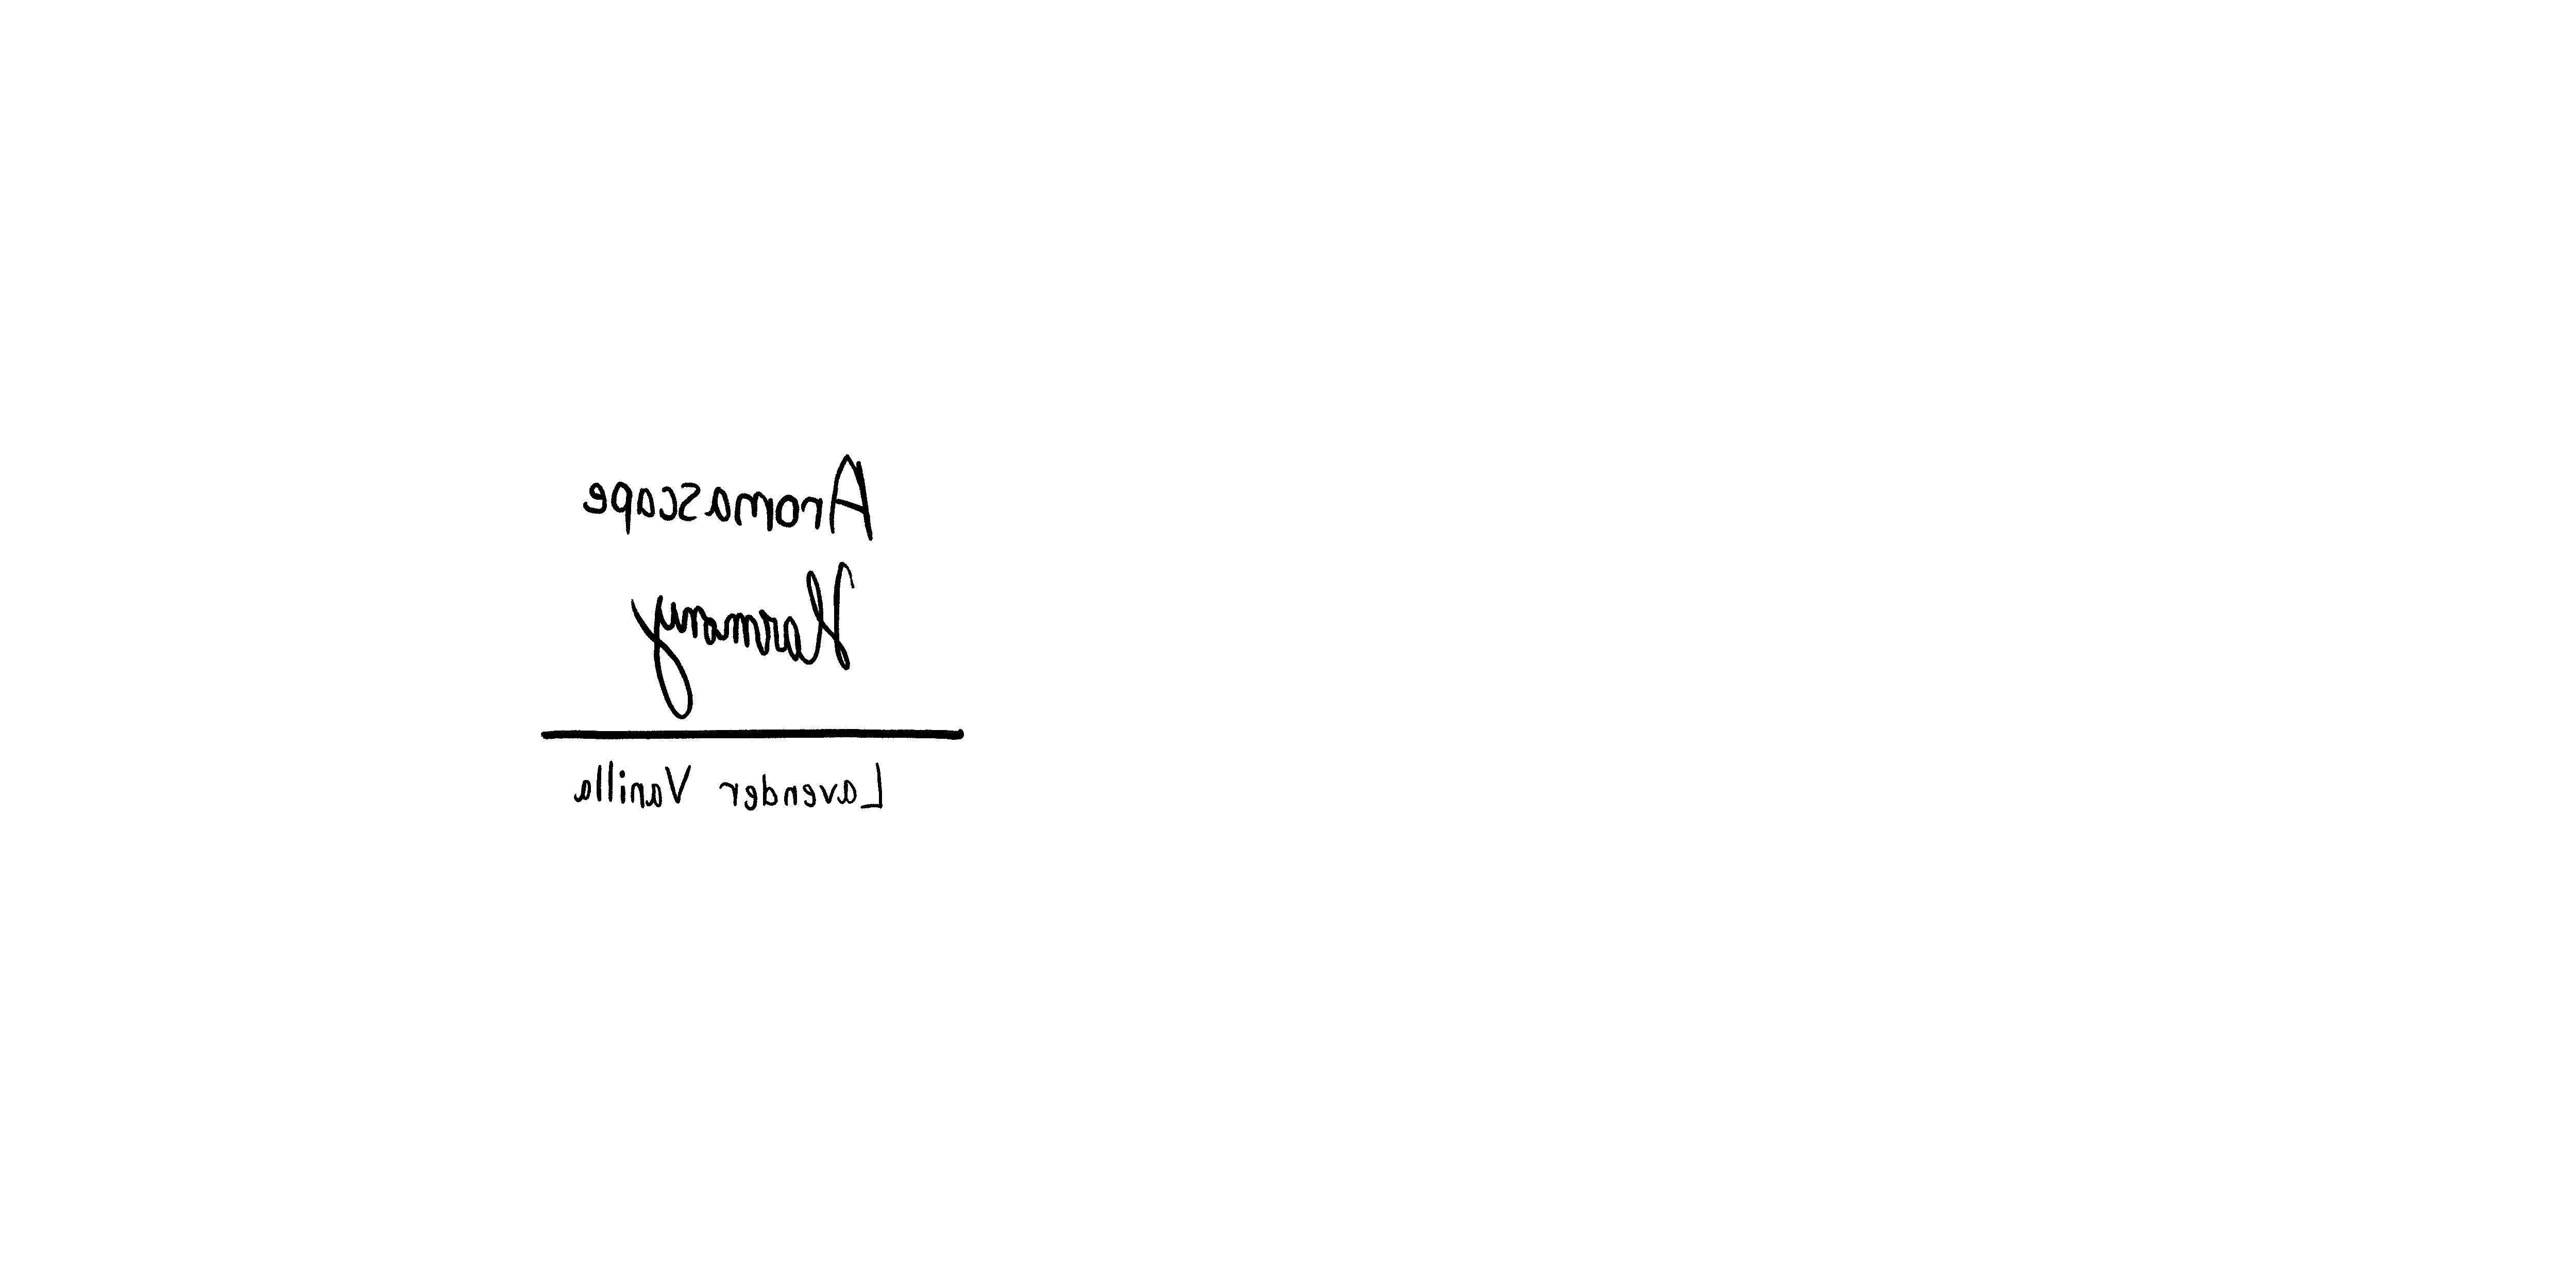 Aromascape
Harmony
Lavender Vanilla